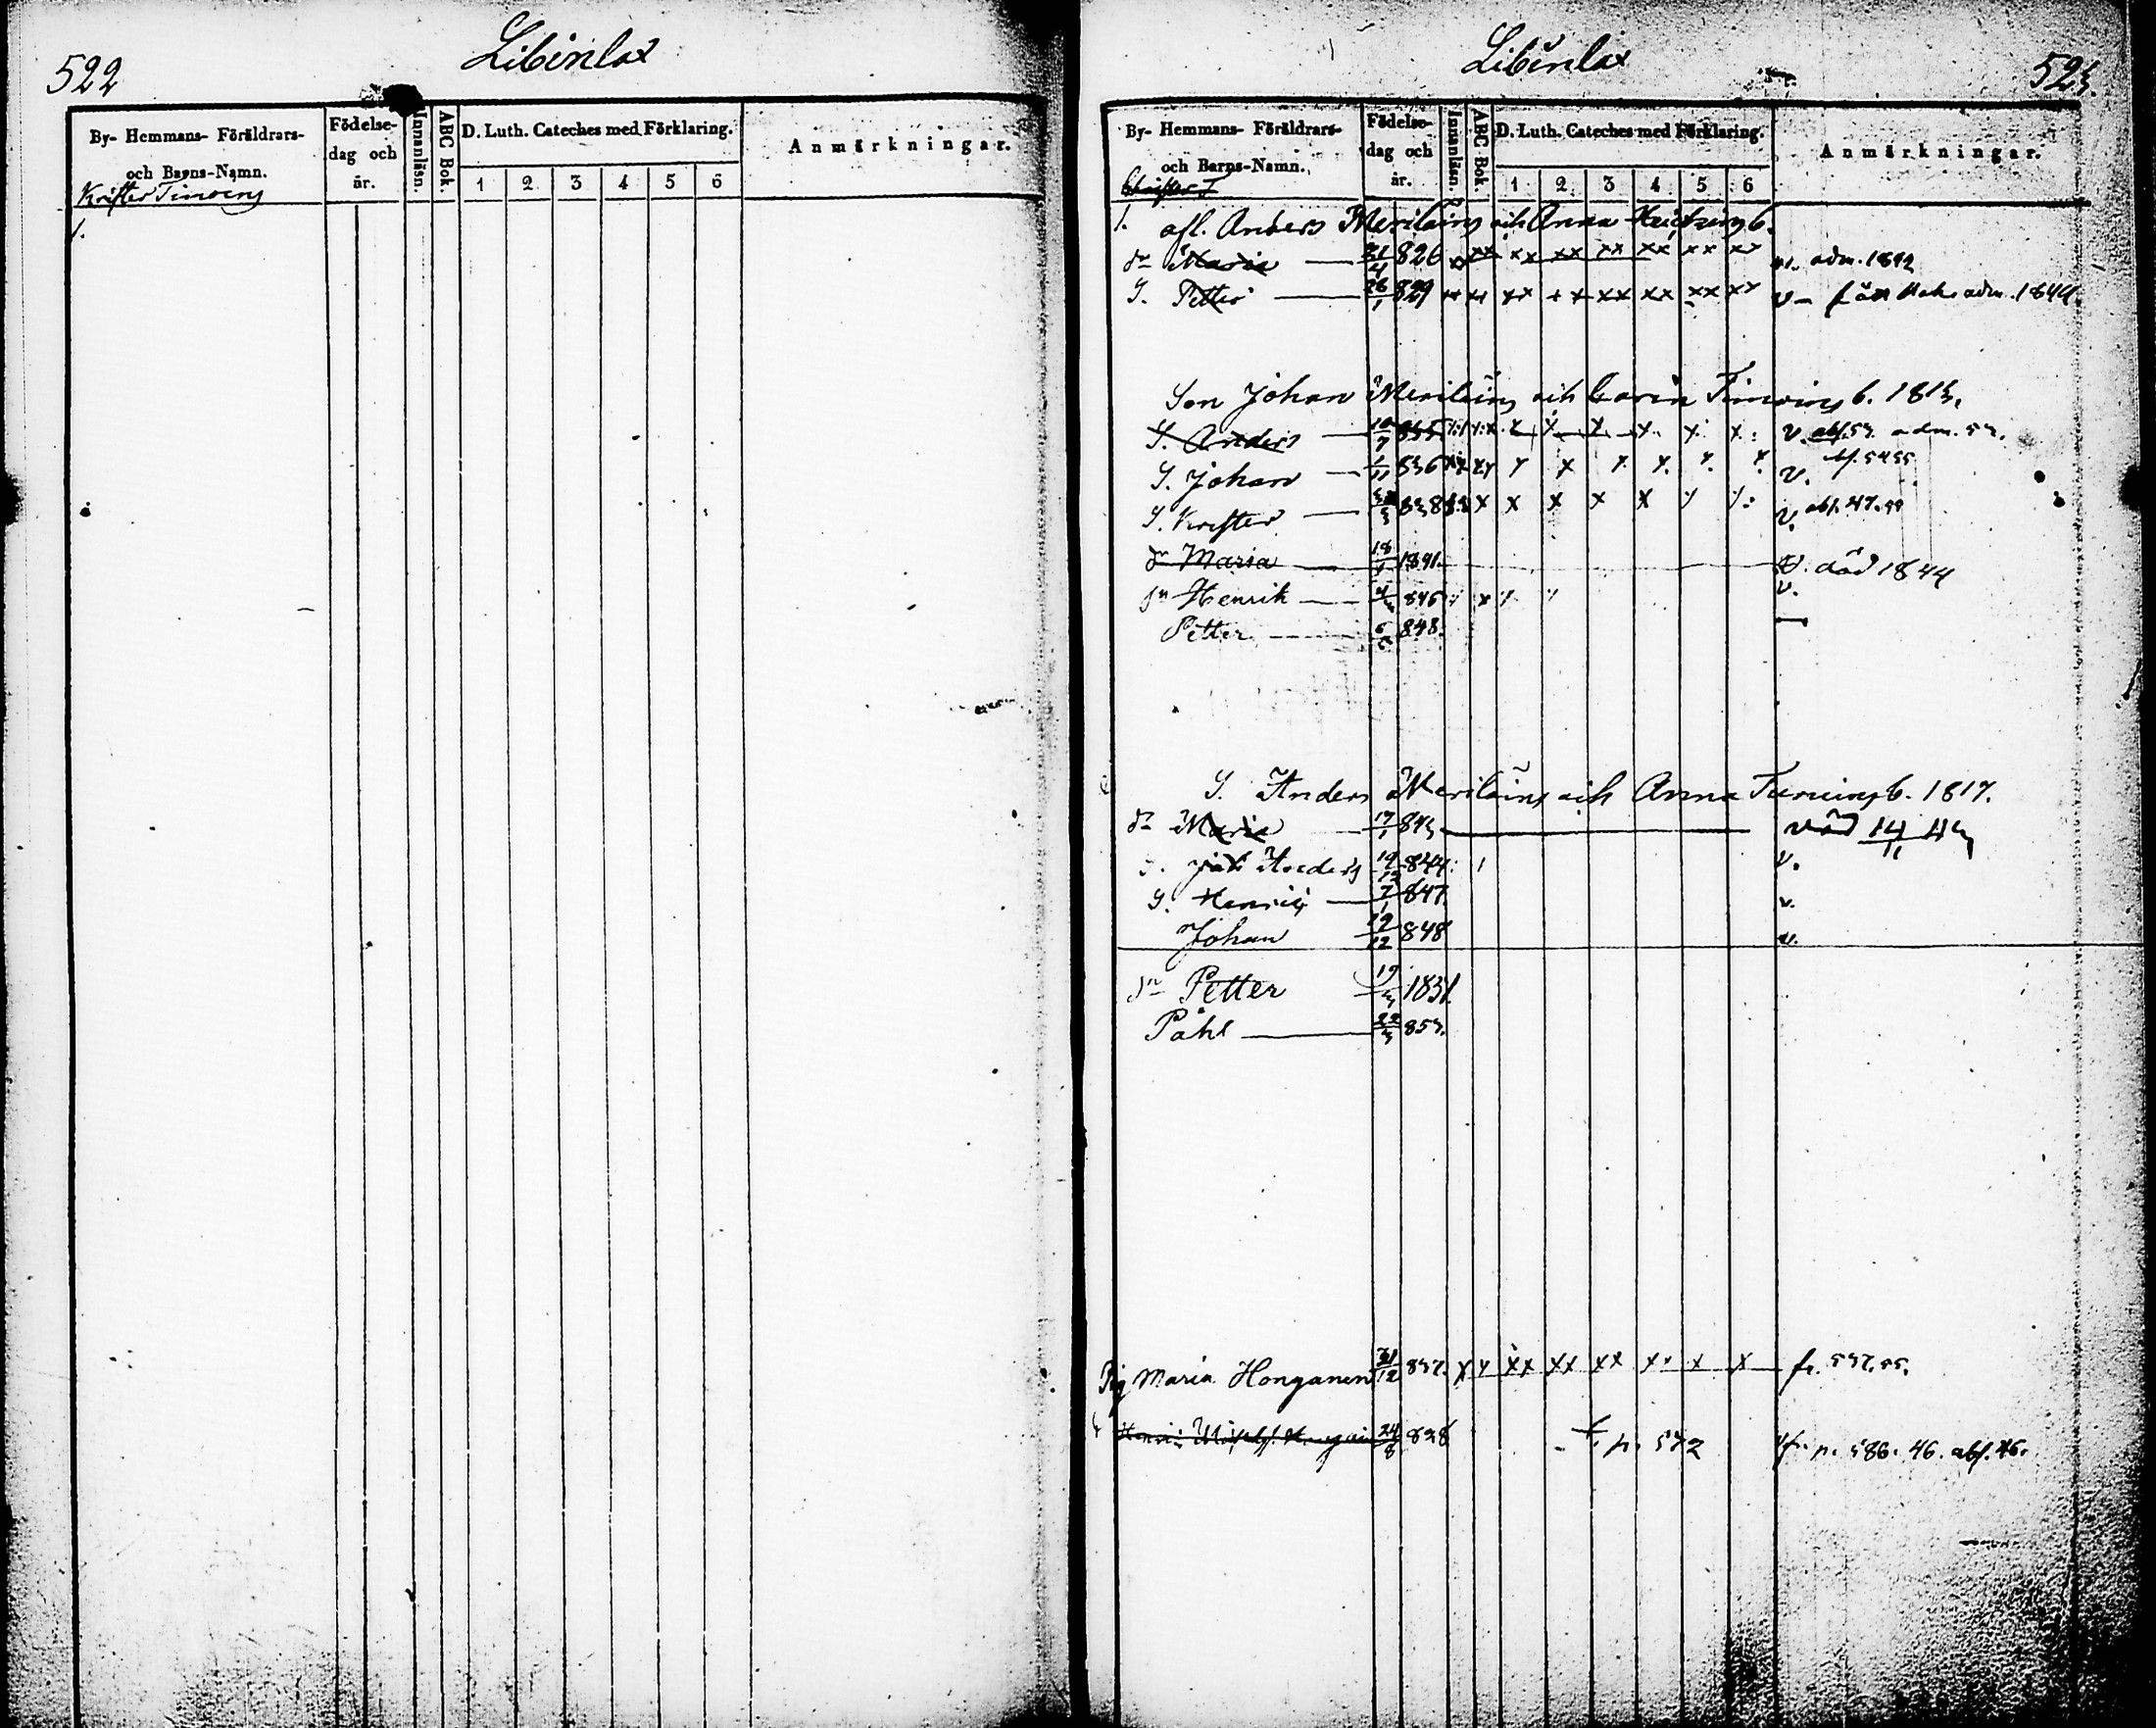 522
Libinlax
By- Hemmans- Föräldrars- och Barns-Namn.
Födelse- dag och år.
Innanläsn.
ABC Bok.
D. Luth. Cateches med Förklaring.
1 2 3 4 5 6
Anmärkningar.
Krister Timoins
1.
Libinlax
523.
By- Hemmans- Föräldrars- och Barns-Namn.
Födelse- dag och år.
Innanläsn.
ABC Bok.
D. Luth. Cateches med Förklaring.
1 2 3 4 5 6
Anmärkningar.
Christer T
1. afl. Anders Meriläins och Anna b.
dr Maria 21/4 826 xx xx xx xx xx xx xx xx v. adm. 1842
S. Petter 26/1 829 xx xx xx xx xx xx xx xx v - adm. 1844.
Son Johan Meriläins och Carin Timoins b. 1813.
S. Anders 10/7 835 x x x x x x v. abs. 53. adm. 53.
S. Johan 1/11 836 x x x x x x v. bs. 54 55
S. Krister 838 x x x x x v. abs. 47.
dr Maria 18/1 1841. v. död 1844
sn Henrik 845 v.
Petter 848.
S. Anders Meriläins och Anna b. 1817.
dr Maria 17/1 843 död 14/11 43
S. Anders 19/12 844. v.
S. Henrik 7/1 847. v.
Johan 19/12 848 v.
sn Petter 19/3 1851.
Påhl 22/3 853.
Pig Maria Honganen 31/12 837. x x xx xx xx x x x x fr. 537. 55.
Henrik 24/8 828 p. 572 fr. p. 586. 46. abs. 46.